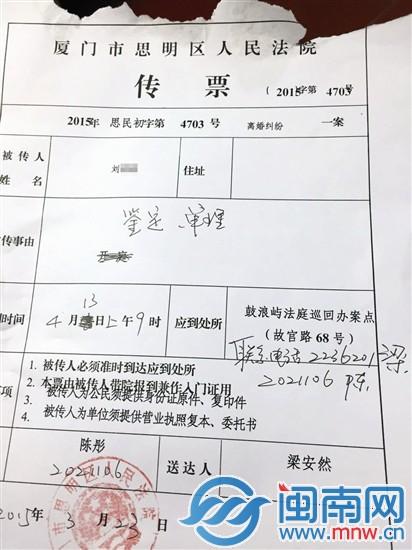 厦门市思明区人民法院
传 票
(2015)字第 4703号
2015年 思民初字第 4703 号 离婚纠纷 一案
被传人
姓 名
刘
住址
被传事由
鉴定、审理
开庭
时间
4月13日上午9时
应到处所
鼓浪屿法庭巡回办案点
(故宫路68号)
联系电话2236201 梁
2021106 陈
1. 被传人必须准时到达应到处所
2. 本票由被传人带院报到兼作入门证用
3. 被传人为公民须提供身份证原件、复印件
4. 被传人为单位须提供营业执照复本、委托书
陈彤
2021106
送达人
梁安然
2015年 3 月 23 日
市思明区人民法
闽南网
www.mnw.cn